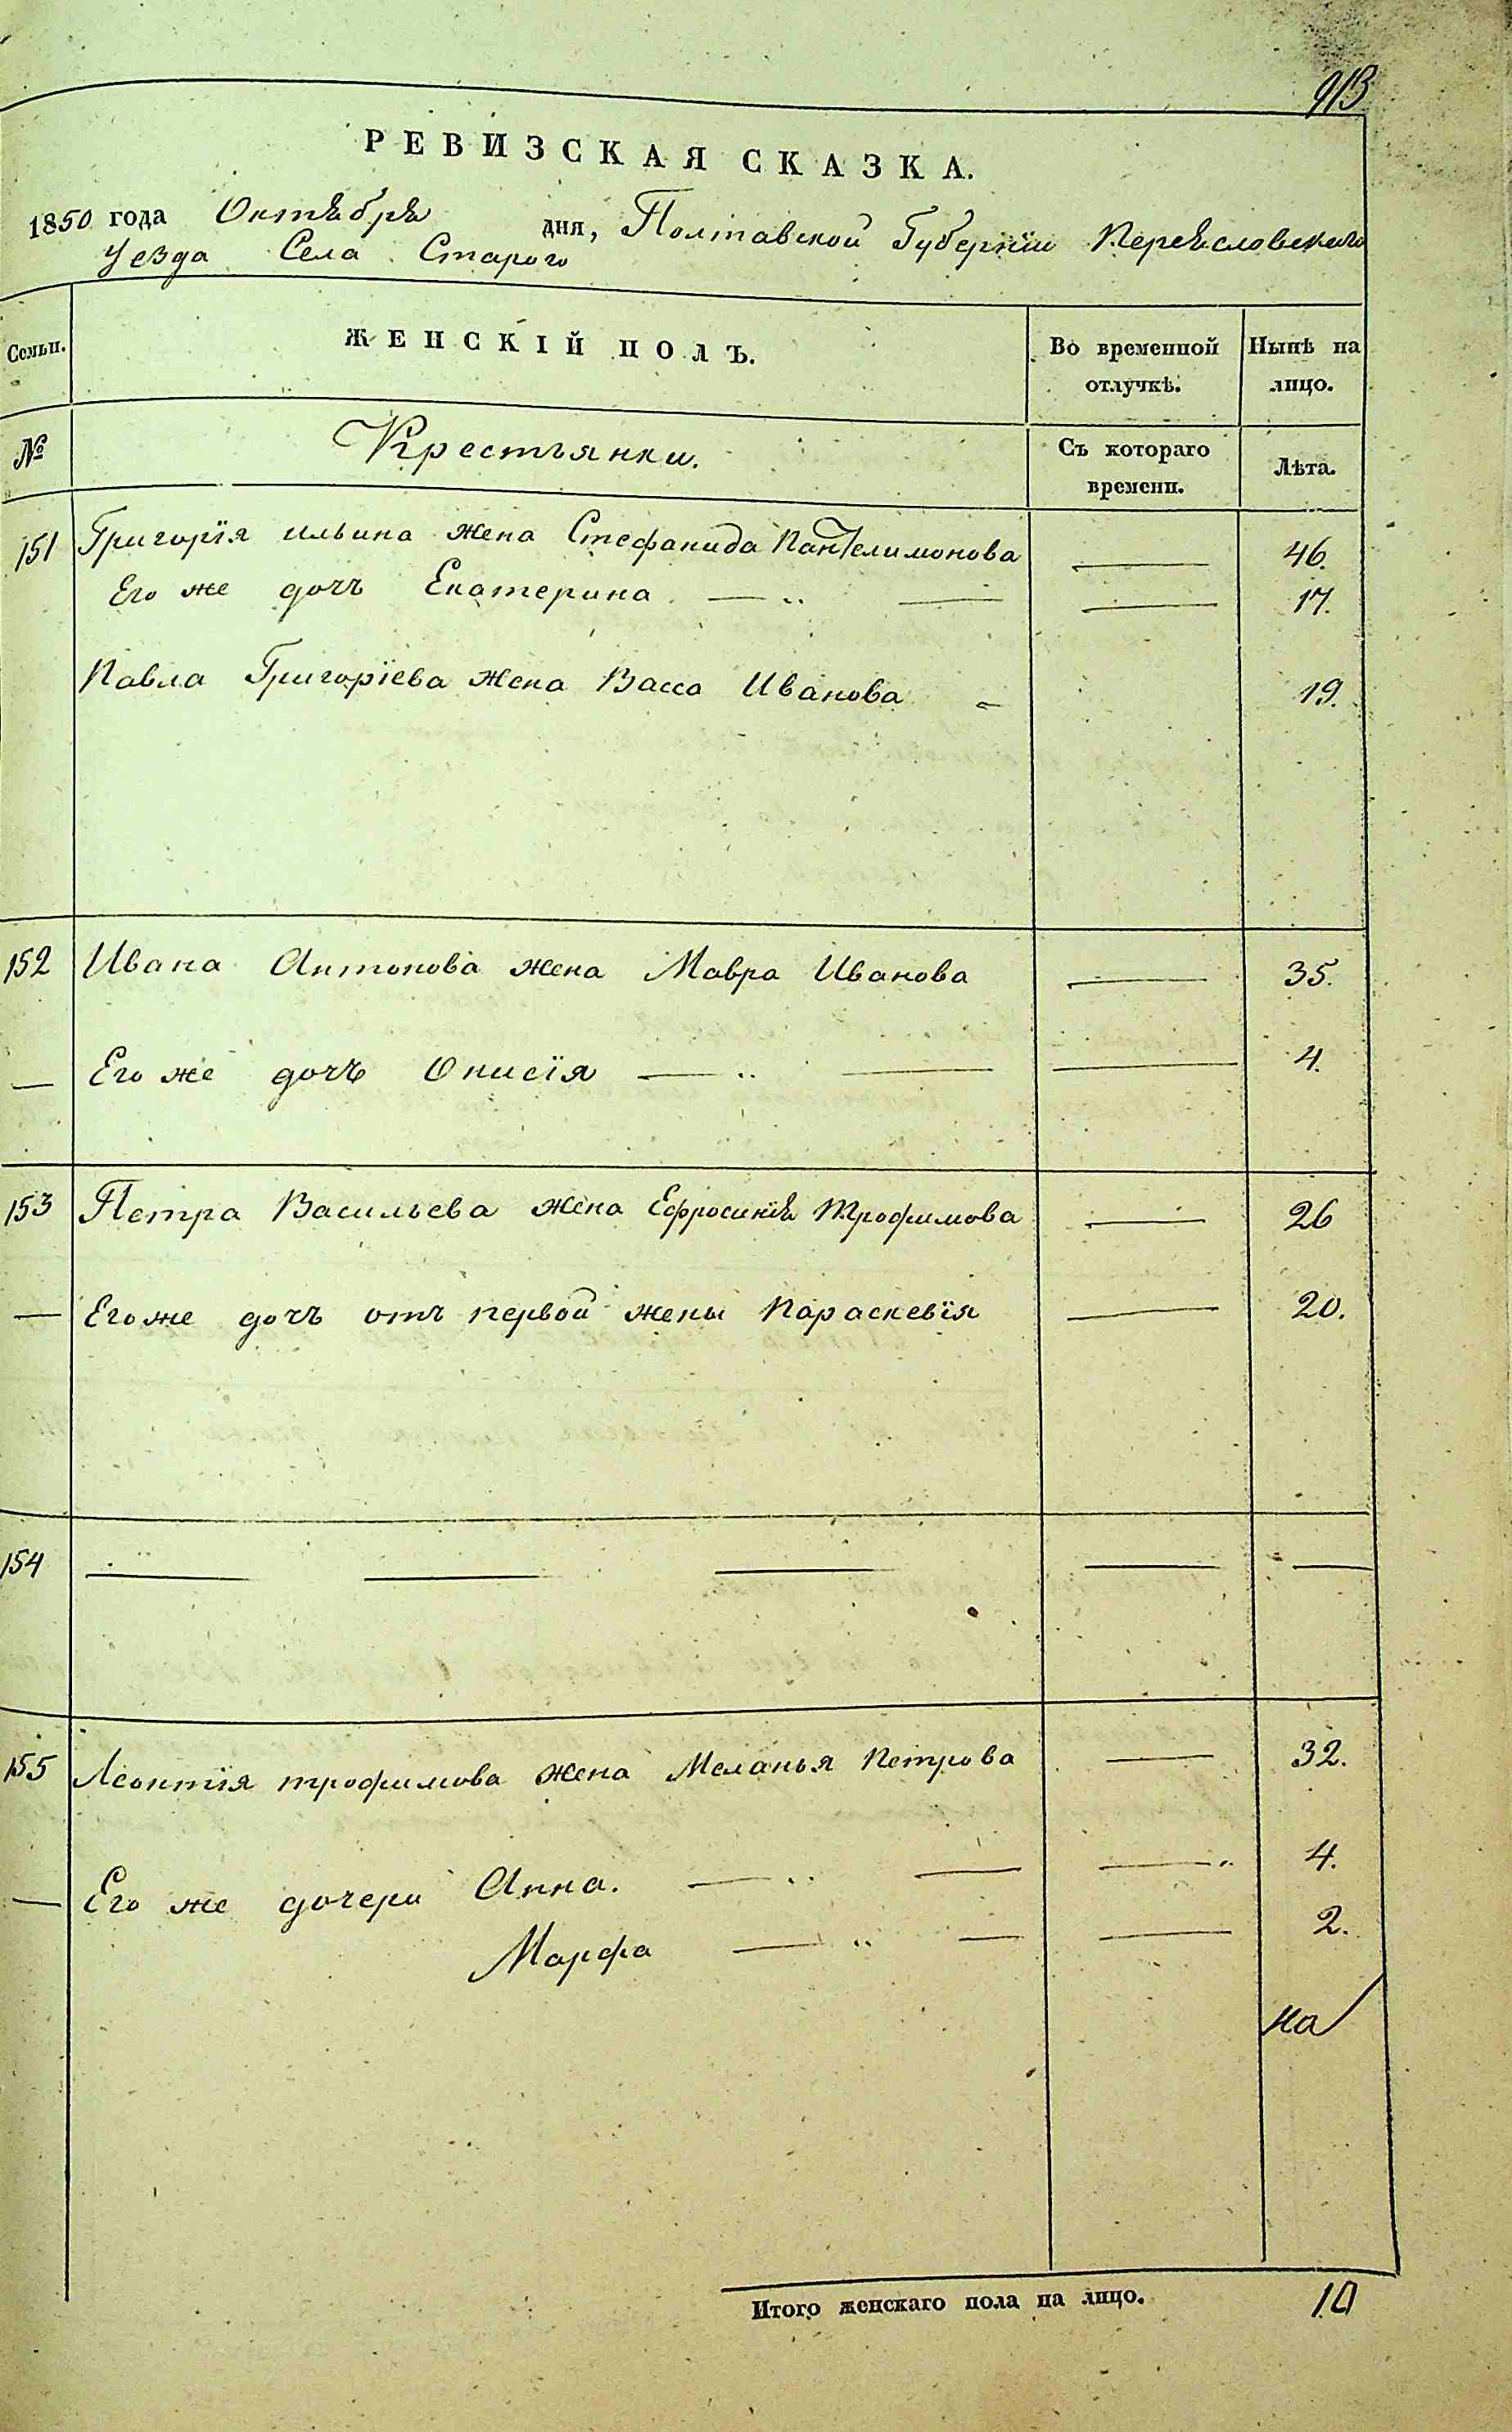 913
РЕВИЗСКАЯ СКАЗКА.
1850 года Октября дня, Полтавской Губерніи Переясловскаго
Уезда Села Старого
Семьи. ЖЕНСКІЙ ПОЛЪ. Во временной отлучкѣ. Нынѣ на лицо.
№ Крестьянки. Съ котораго времени. Лѣта.
151 Григорїя ильина жена Стефанида Пантелимонова — 46.
Его же дочъ Екатерина — „ — — 17.
Павла Григорїева жена Васса Иванова 19.
152 Ивана Антонова жена Мавра Иванова — 35.
— Его же дочъ Онисїя — „ — — 4.
153 Петра Васильева жена Ефросинія Трофимова — 26
— Его же дочъ отъ первой жены Параскевїя — 20.
154 — — — — —
155 Леонтїя трофимова жена Меланья Петрова — 32.
— Его же дочери Анна. — „ — — „ 4.
Марфа — „ — — 2.
на
Итого женскаго пола на лицо. 10